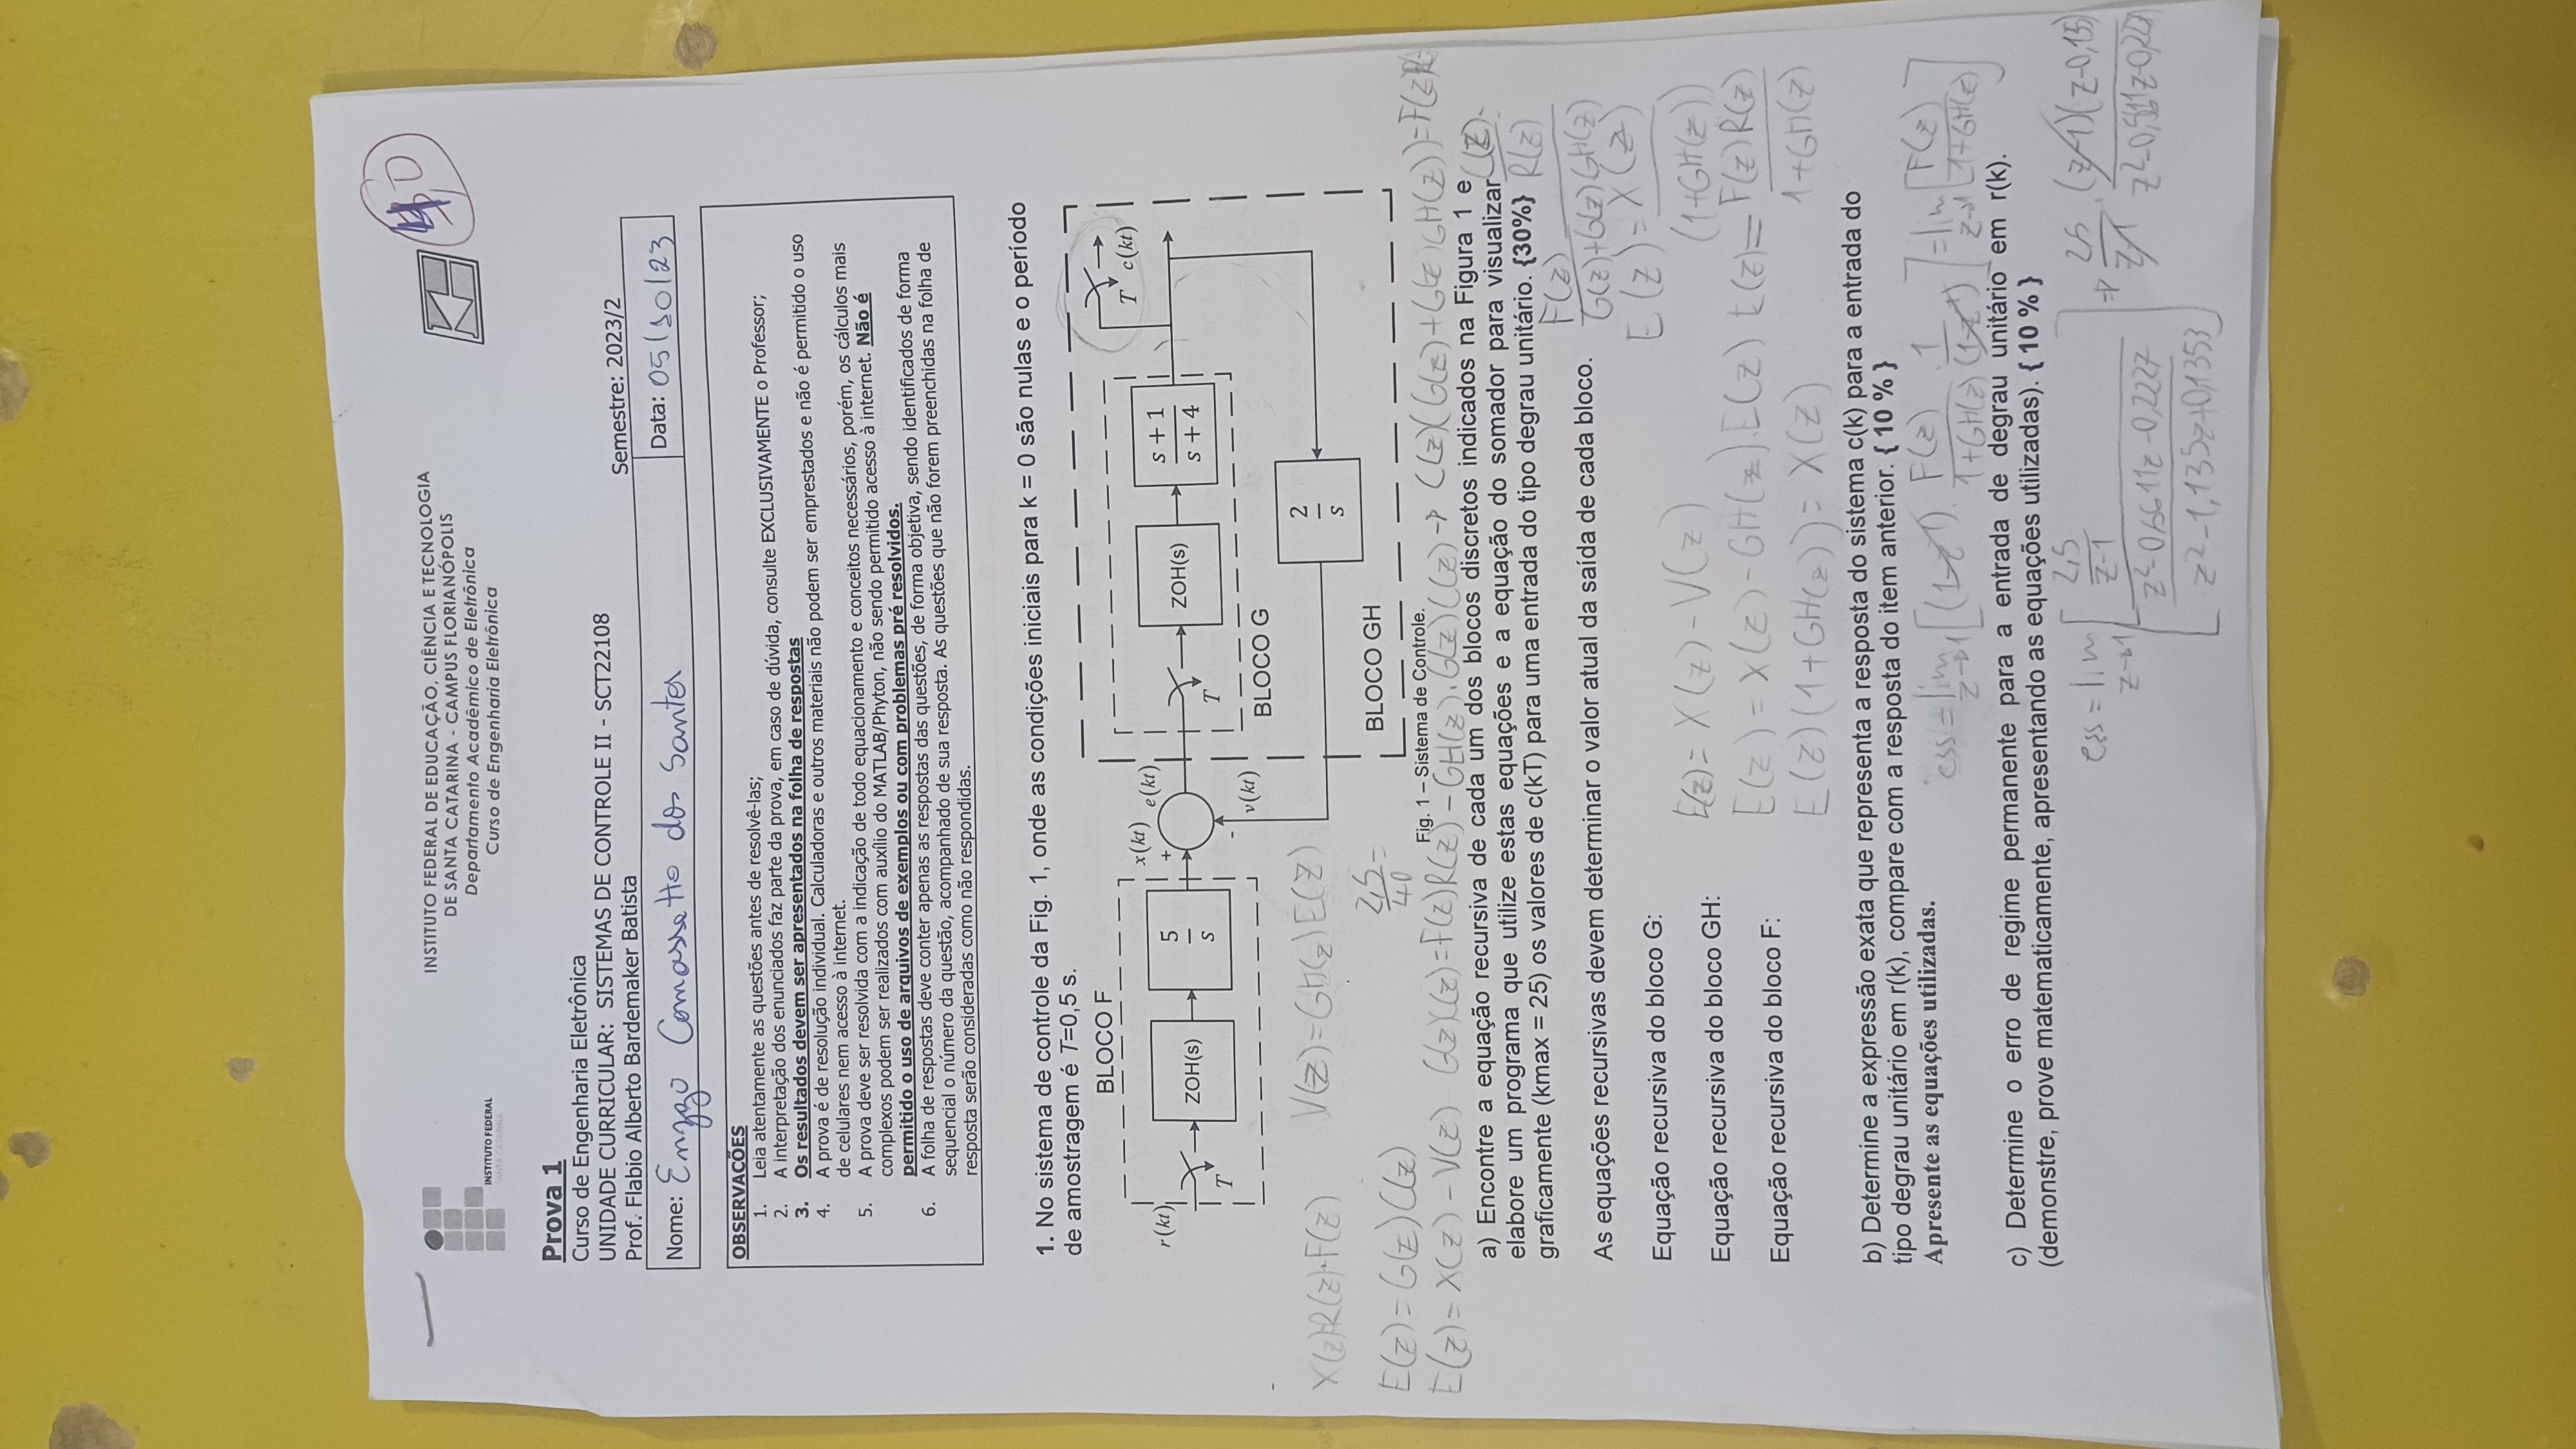 4,0
INSTITUTO FEDERAL DE EDUCAÇÃO, CIÊNCIA E TECNOLOGIA
DE SANTA CATARINA - CAMPUS FLORIANÓPOLIS
Departamento Acadêmico de Eletrônica
Curso de Engenharia Eletrônica
INSTITUTO FEDERAL
SANTA CATARINA
Prova 1
Curso de Engenharia Eletrônica
UNIDADE CURRICULAR: SISTEMAS DE CONTROLE II - SCT22108
Prof. Flabio Alberto Bardemaker Batista
Semestre: 2023/2
Nome: Enzzo Comassetto dos Santos
Data: 05/10/23
OBSERVAÇÕES
1. Leia atentamente as questões antes de resolvê-las;
2. A interpretação dos enunciados faz parte da prova, em caso de dúvida, consulte EXCLUSIVAMENTE o Professor;
3. Os resultados devem ser apresentados na folha de respostas
4. A prova é de resolução individual. Calculadoras e outros materiais não podem ser emprestados e não é permitido o uso
de celulares nem acesso à internet.
5. A prova deve ser resolvida com a indicação de todo equacionamento e conceitos necessários, porém, os cálculos mais
complexos podem ser realizados com auxílio do MATLAB/Phyton, não sendo permitido acesso à internet. Não é
permitido o uso de arquivos de exemplos ou com problemas pré resolvidos.
6. A folha de respostas deve conter apenas as respostas das questões, de forma objetiva, sendo identificados de forma
sequencial o número da questão, acompanhado de sua resposta. As questões que não forem preenchidas na folha de
resposta serão consideradas como não respondidas.
1. No sistema de controle da Fig. 1, onde as condições iniciais para k = 0 são nulas e o período
de amostragem é T=0,5 s.
BLOCO F
r(kt)
T
ZOH(s)
5
s
x(kt)
+
e(kt)
-
v(kt)
T
ZOH(s)
s + 1
s + 4
T c(kt)
BLOCO G
2
s
BLOCO GH
X(z)=R(z)·F(z)
V(z)=GH(z)E(z)
2,5/40 =
E(z)=G(z)C(z)
Fig. 1 – Sistema de Controle.
E(z)=X(z)-V(z) G(z)C(z)=F(z)R(z)-GH(z).G(z)C(z) → C(z)(G(z)+G(z)GH(z))=F(z)R(z)
a) Encontre a equação recursiva de cada um dos blocos discretos indicados na Figura 1 e
elabore um programa que utilize estas equações e a equação do somador para visualizar
graficamente (kmax = 25) os valores de c(kT) para uma entrada do tipo degrau unitário. {30%}
C(z)/R(z) =
F(z)/(G(z)+G(z)GH(z))
As equações recursivas devem determinar o valor atual da saída de cada bloco.
Equação recursiva do bloco G:
E(z)=X(z)/(1+GH(z))
E(z)=X(z)-V(z)
Equação recursiva do bloco GH:
E(z)=X(z)-GH(z).E(z) E(z)=F(z)R(z)/1+GH(z)
Equação recursiva do bloco F:
E(z)(1+GH(z))=X(z)
b) Determine a expressão exata que representa a resposta do sistema c(k) para a entrada do
tipo degrau unitário em r(k), compare com a resposta do item anterior. { 10 % }
Apresente as equações utilizadas.
ess=lim z→1 [(1-z⁻¹). F(z)/1+GH(z) . 1/(1-z⁻¹)] = lim z→1 [F(z)/1+GH(z)]
c) Determine o erro de regime permanente para a entrada de degrau unitário em r(k).
(demonstre, prove matematicamente, apresentando as equações utilizadas). { 10 % }
ess=lim z→1 [2,5/z-1 / z²-0,5611z-0,2227 / z²-1,135z+0,1353] ⇒ 2,5/z-1 . (z-1)(z-0,135)/z²-0,5611z-0,227